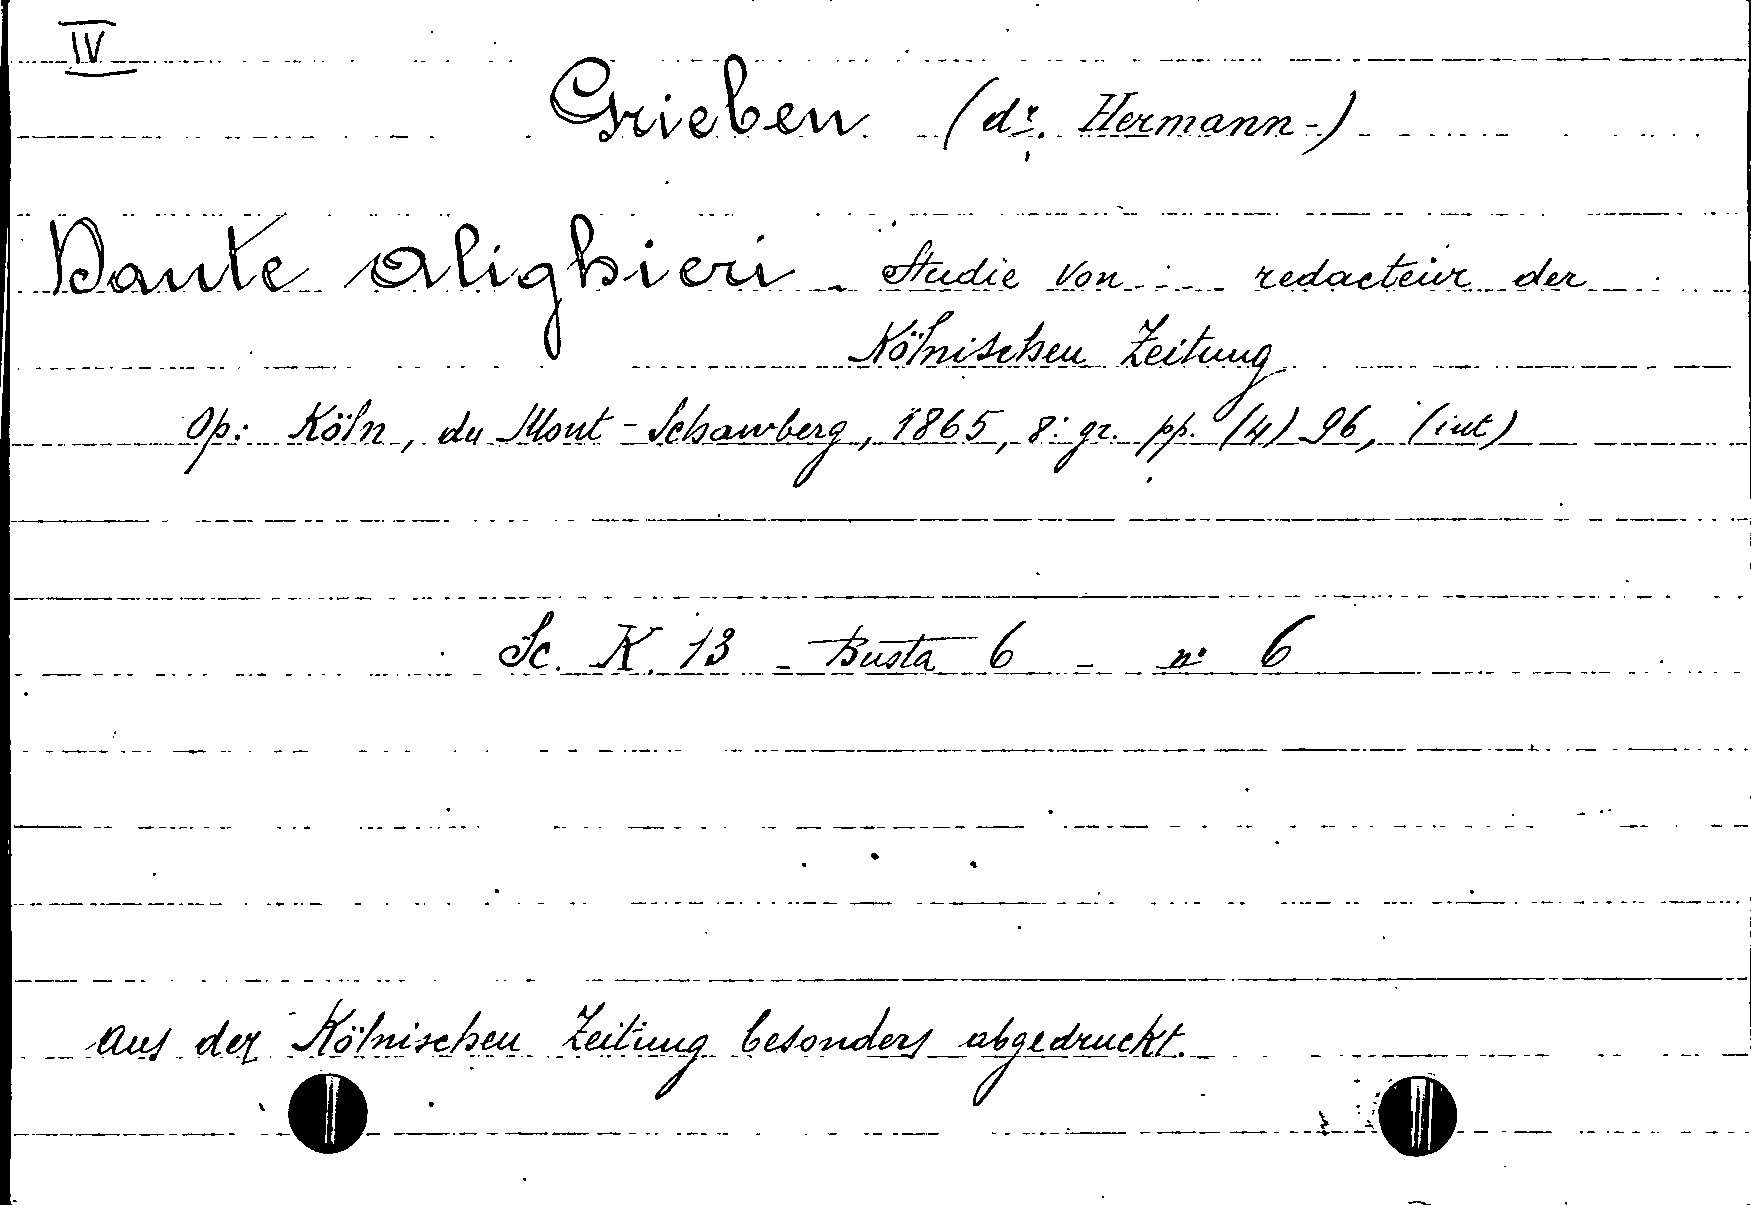 IV
Grieben (dr. Hermann-)
Dante Alighieri - Studie von ... redacteur der
Kölnischen Zeitung
Op: Köln, du Mont-Schawberg, 1865, 8: gr. pp. (4) 96, (int)
Sc. K. 13 - Busta 6 - nº 6
Aus der Kölnischen Zeitung besonders abgedruckt.